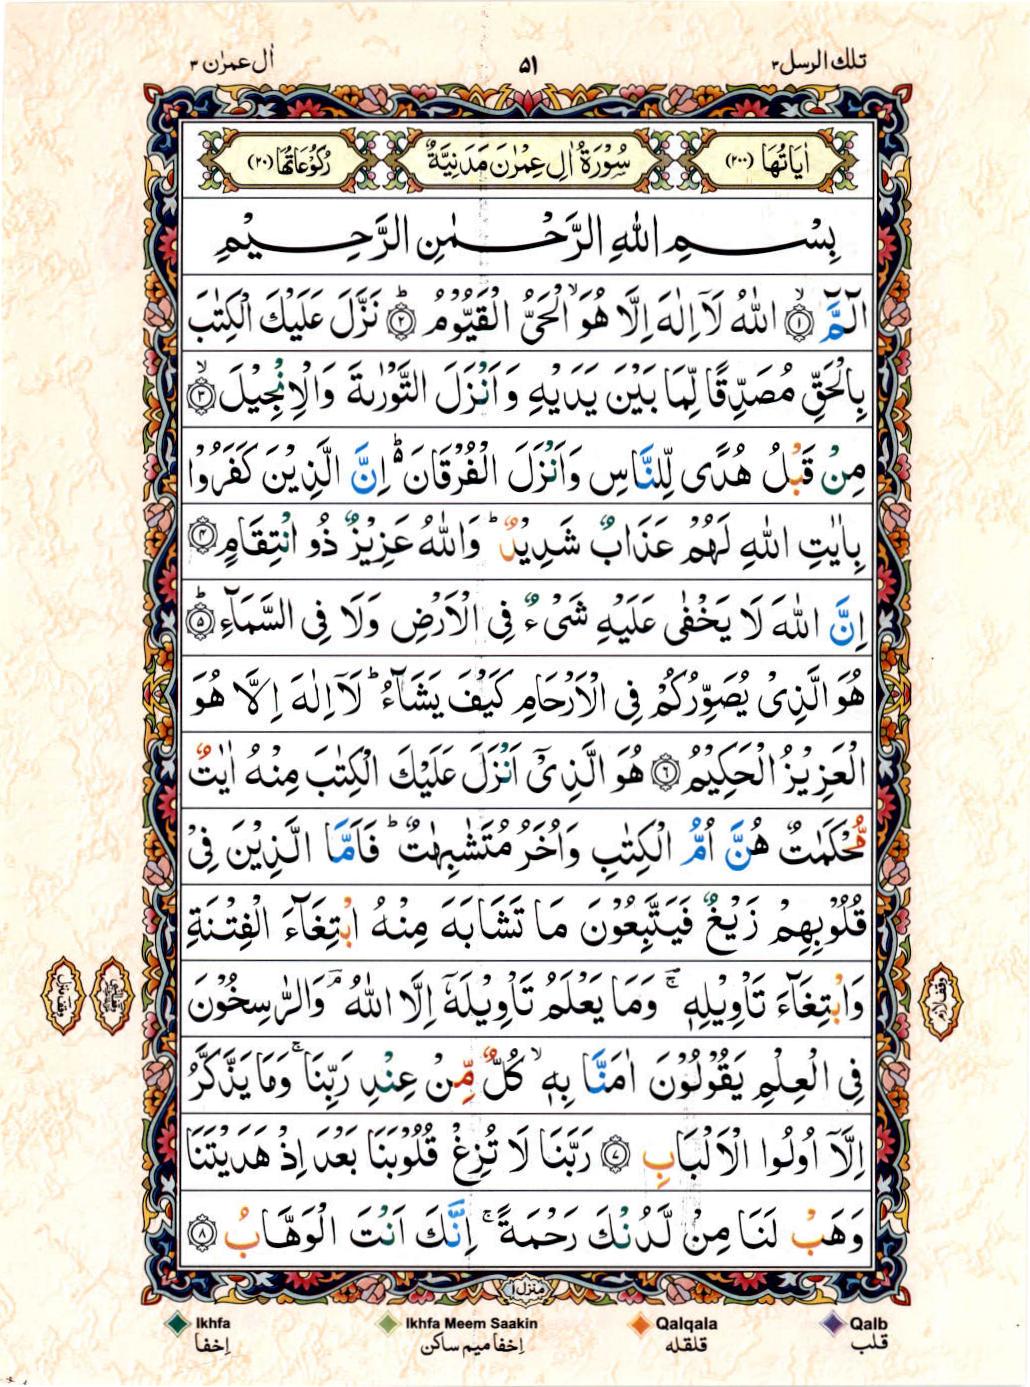 تلك الرسل ٣
٥١
اٰل عمرٰن ٣
اٰيَاتُهَا (٢٠٠)
سُوْرَةُ اٰلِ عِمْرٰنَ مَدَنِيَّةٌ
رُكُوْعَاتُهَا (٢٠)
بِسْمِ اللّٰهِ الرَّحْمٰنِ الرَّحِيْمِ
الٓمَّٓ ۙ﴿١﴾ اللّٰهُ لَاۤ اِلٰهَ اِلَّا هُوَ ۙ الْحَىُّ الْقَيُّوْمُ ؕ﴿٢﴾ نَزَّلَ عَلَيْكَ الْكِتٰبَ
بِالْحَقِّ مُصَدِّقًا لِّمَا بَيْنَ يَدَيْهِ وَاَنْزَلَ التَّوْرٰىةَ وَالْاِنْجِيْلَ ۙ﴿٣﴾
مِنْ قَبْلُ هُدًى لِّلنَّاسِ وَاَنْزَلَ الْفُرْقَانَ ؕ اِنَّ الَّذِيْنَ كَفَرُوْا
بِاٰيٰتِ اللّٰهِ لَهُمْ عَذَابٌ شَدِيْدٌ ؕ وَاللّٰهُ عَزِيْزٌ ذُو انْتِقَامٍ ﴿٤﴾
اِنَّ اللّٰهَ لَا يَخْفٰى عَلَيْهِ شَىْءٌ فِى الْاَرْضِ وَلَا فِى السَّمَآءِ ؕ﴿٥﴾
هُوَ الَّذِىْ يُصَوِّرُكُمْ فِى الْاَرْحَامِ كَيْفَ يَشَآءُ ؕ لَاۤ اِلٰهَ اِلَّا هُوَ
الْعَزِيْزُ الْحَكِيْمُ ﴿٦﴾ هُوَ الَّذِىْۤ اَنْزَلَ عَلَيْكَ الْكِتٰبَ مِنْهُ اٰيٰتٌ
مُّحْكَمٰتٌ هُنَّ اُمُّ الْكِتٰبِ وَاُخَرُ مُتَشٰبِهٰتٌ ؕ فَاَمَّا الَّذِيْنَ فِىْ
قُلُوْبِهِمْ زَيْغٌ فَيَتَّبِعُوْنَ مَا تَشَابَهَ مِنْهُ ابْتِغَآءَ الْفِتْنَةِ
وَابْتِغَآءَ تَاْوِيْلِهٖ ۚ وَمَا يَعْلَمُ تَاْوِيْلَهٗۤ اِلَّا اللّٰهُ ۘ وَالرّٰسِخُوْنَ
فِى الْعِلْمِ يَقُوْلُوْنَ اٰمَنَّا بِهٖ ۙ كُلٌّ مِّنْ عِنْدِ رَبِّنَا ۚ وَمَا يَذَّكَّرُ
اِلَّاۤ اُولُوا الْاَلْبَابِ ﴿٧﴾ رَبَّنَا لَا تُزِغْ قُلُوْبَنَا بَعْدَ اِذْ هَدَيْتَنَا
وَهَبْ لَنَا مِنْ لَّدُنْكَ رَحْمَةً ۚ اِنَّكَ اَنْتَ الْوَهَّابُ ﴿٨﴾
وقف لازم
منزل ١
Ikhfa
اِخفا
Ikhfa Meem Saakin
اِخفا میم ساکن
Qalqala
قلقله
Qalb
قلب